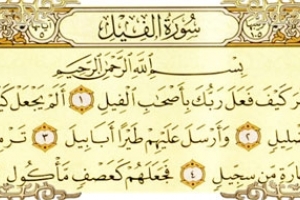 سُورَةُ الفِيلِ
بِسْمِ اللَّهِ الرَّحْمَٰنِ الرَّحِيمِ
كَيْفَ فَعَلَ رَبُّكَ بِأَصْحَابِ الْفِيلِ ١ أَلَمْ يَجْعَلْ
٢ وَأَرْسَلَ عَلَيْهِمْ طَيْرًا أَبَابِيلَ ٣
مِنْ سِجِّيلٍ ٤ فَجَعَلَهُمْ كَعَصْفٍ مَأْكُولٍ